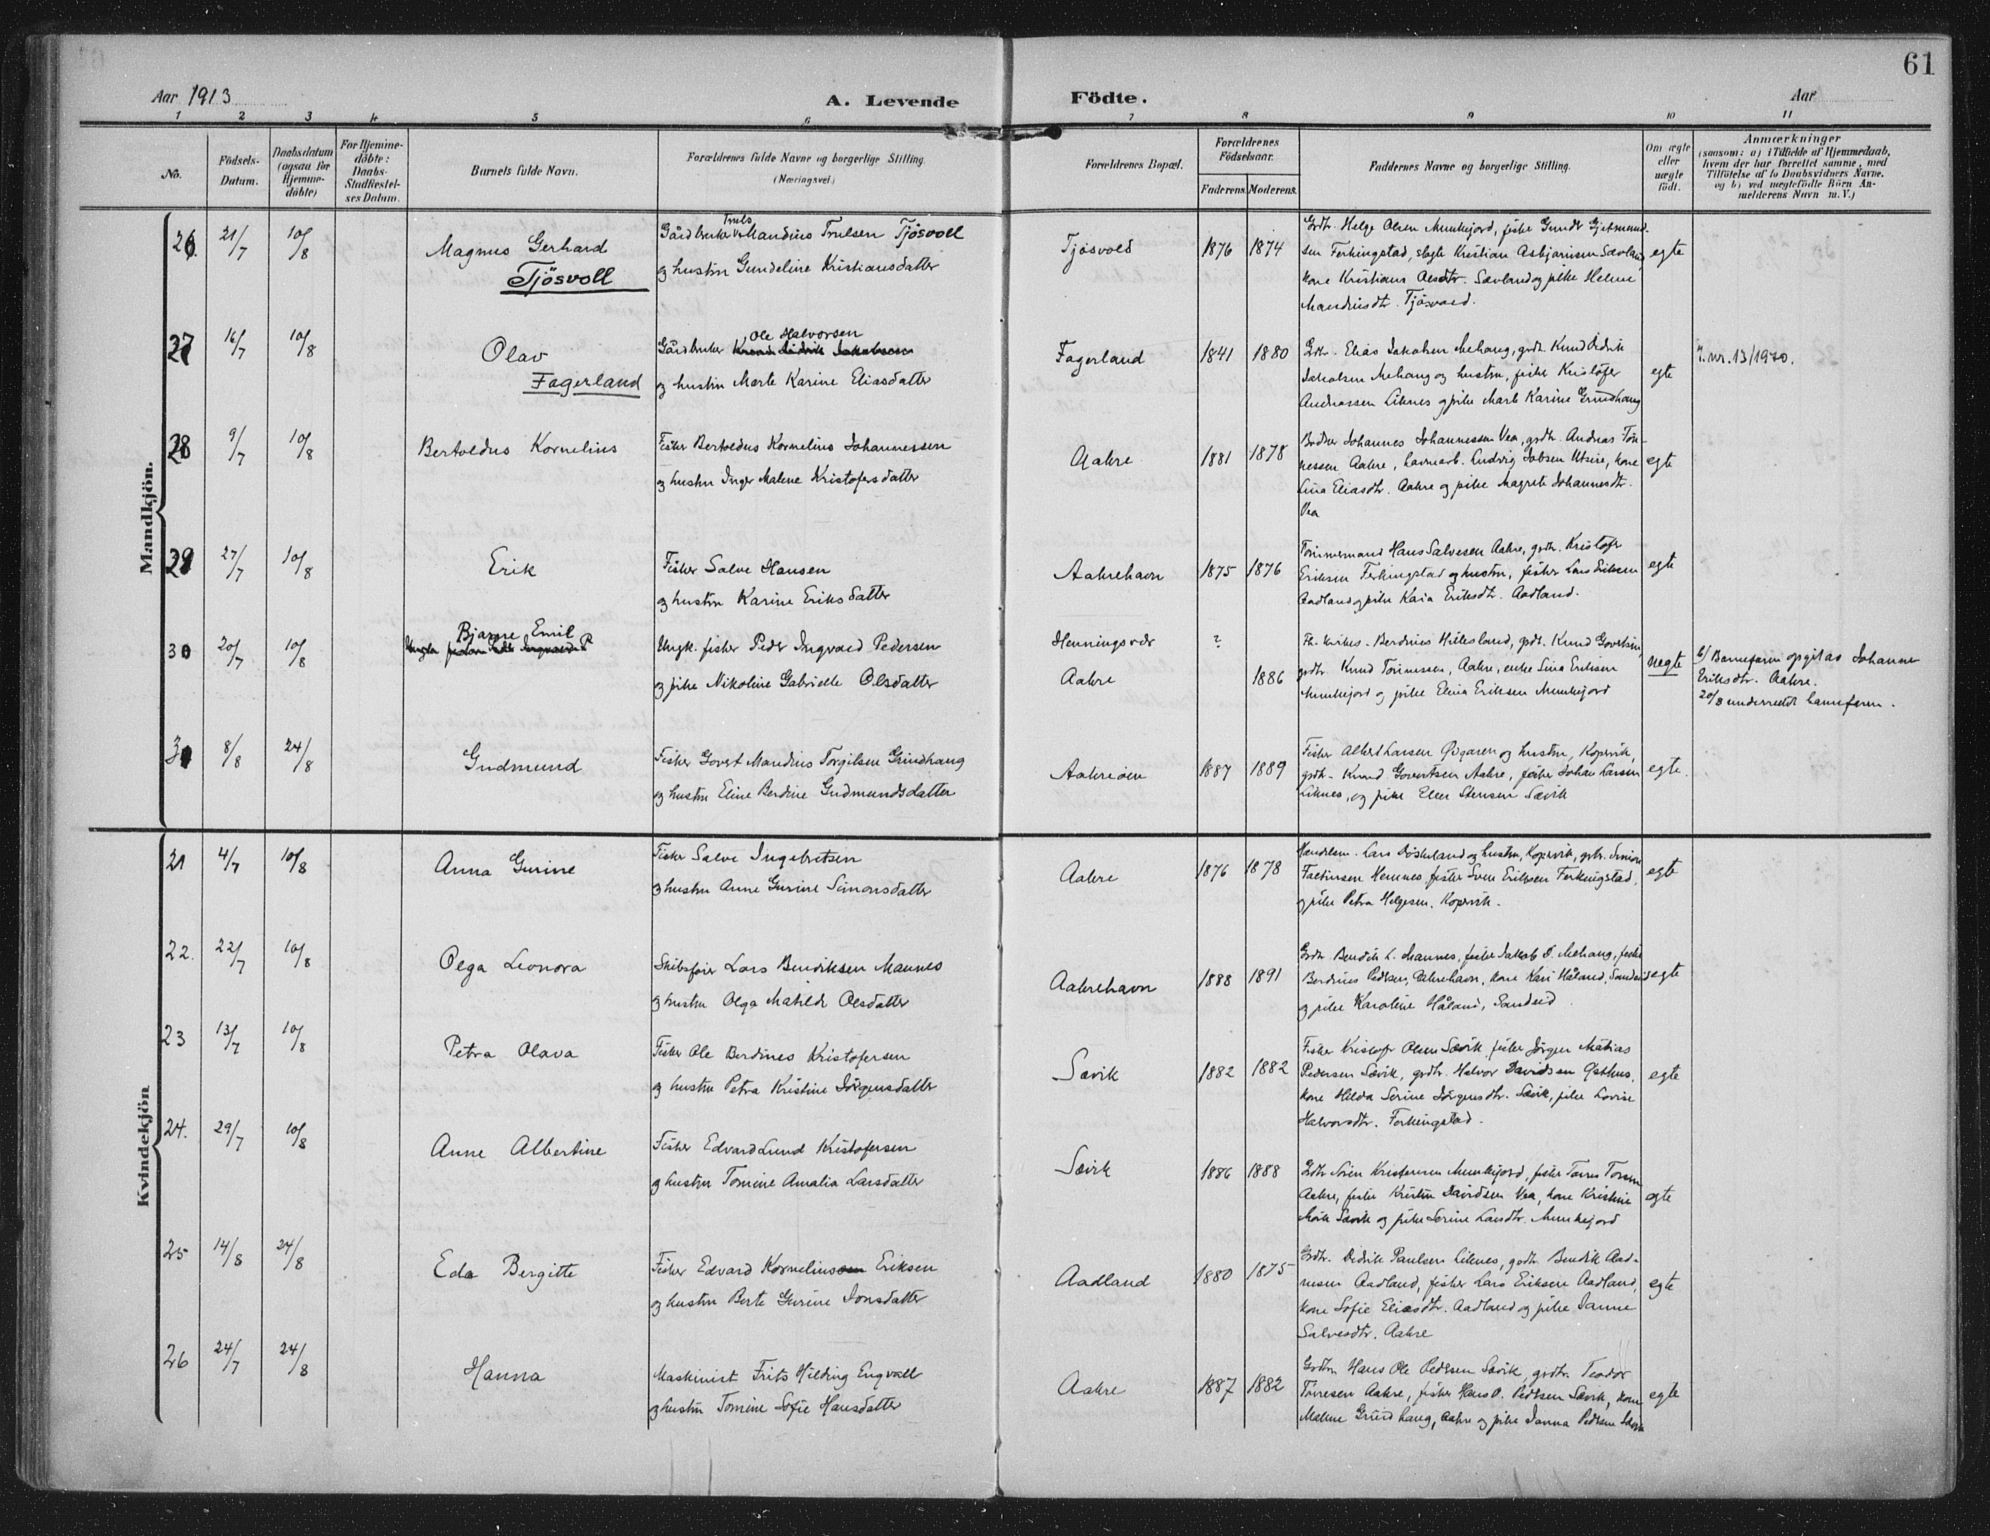 61
Aar 1913
A. Levende Födte.
Aar
1 2 3 4 5 6 7 8 9 10 11
No.
Födsels-Datum.
Daabsdatum (ogsaa for Hjemme-döbte)
For Hjemme-döbte: Daabs-Stadfæstel-ses Datum.
Barnets fulde Navn.
Forældrenes fulde Navne og borgerlige Stilling. (Næringsvei.)
Forældrenes Bopæl.
Forældrenes Födselsaar.
Faderens. Moderens.
Faddernes Navne og borgerlige Stilling.
Om ægte eller uægte födt.
Anmærkninger
(saasom: a) i Tilfælde af Hjemmedaab, hvem der har forrettet samme, med Tilföielse af to Daabsvidners Navne, og b) ved uægtefödte Börn An-melderens Navn m. V.)
Mandkjön.
26. 21/7 10/8 Magnus Gerhard Tjösvoll
Gårdbruker Truls Mandius Trulsen Tjösvoll
og hustru Gundeline Kristiansdatter
Tjösvold 1876 1874
Grdbr. Helge Olsen Munkejord, fisker Gundr Gjetmund-
sen Ferkingstad, Kristian Asbjørnsen Sævland,
kone Kristiana Sævland og pike Helene
Mandiusdtr. Tjösvold.
egte
27 16/7 10/8 Olav Fagerland
Gårdbruker Ole Halvorsen
og hustru Marte Karine Eliasdatter
Fagerland 1841 1880
Grdbr. Elias Jakobsen Mehaug, grdb. Knud Didrik
Jakobsen Mehaug og hustru, fisker Kristofer
Andreassen Liknes og pike Marta Karine Grindhaug
egte
nr. 13/1970.
28 9/7 10/8 Bertoldus Kornelius
Fisker Bertoldus Kornelius Johannessen
og hustru Inger Malene Kristofersdatter
Aakre 1881 1878
Johannes Johannessen Vea, grdb. Andreas Tön-
nessen Aakre, Ludvig Jobsen Utsire, kone
Lina Eliasdtr. Aakre og pike Magrete Johannesdtr.
Vea
egte
29 27/7 10/8 Erik
Fisker Salve Hansen
og hustru Karine Eriksdatter
Aakrehavn 1875 1876
Tömmermand Hans Salvesen Aakre, grdb. Kristofer
Eriksen Ferkingstad og hustru, fisker Lars Eriksen
Aadland og pike Kaia Eriksdtr. Aadland.
egte
30 20/7 10/8 Bjarne Emil
Ungk. fisker Peder Ingvald Pedersen
og pike Nikoline Gabrielle Olsdatter
Henningsvær ?
Aakre 1886
Berdines Hilesland, grdb. Knud Govertsen,
grdb. Knud Tönnessen, Aakre, enke Lina Eriksen
Munkejord og pike Elina Eriksen Munkejord
uegte
b/ Barnefaren opgit av Johanne
Eriksdtr. Aakre.
20/8 underrettet barnefaren.
31 8/8 24/8 Gudmund
Fisker Govert Mandius Torgilsen Grindhaug
og hustru Eline Berdine Gudmundsdatter
Aakreöen 1887 1889
Fisker Albert Larsen og hustru, Kopervik,
grdb. Knud Govertsen Aakre, fisker Johan Larsen
Liknes, og pike Ellen Stensen Sævik
egte.
Kvindekjön
21 4/7 10/8 Anna Gurine
Fisker Salve Ingebretsen
og hustru Anne Gurine Simonsdatter
Aakre 1876 1878
Lars Österland og hustru, Kopervik, grbr. Simon
Hemnes, fisker Sven Eriksen Ferkingstad,
og pike Petra Helgesen, Kopervik.
egte
22. 22/7 10/8 Olga Leonora
Skibsförer Lars Bendiksen Mannes
og hustru Olga Matilde Olsdatter
Aakrehavn 1888 1891
Grdb. Bendik L. Mannes, fisker Jakob D. Mehaug, fisker
Berdines Pedersen, Aakrehavn, kone Kari Håland, Sandeid
og pike Karoline Håland, Sandeid.
egte
23 13/7 10/8 Petra Olava
Fisker Ole Berdines Kristofersen
og hustru Petra Kristine Jörgensdatter
Sævik 1882 1882
Fisker Kristofer Olsen Sævik, fisker Jörgen Matias
Pedersen Sævik, grdbr. Halvor Davidsen Östhus,
kone Helda Serine Jörgensdtr. Sævik, pike Lovise
Halvorsdtr. Ferkingstad.
egte
24. 29/7 10/8 Anne Albertine
Fisker Edvard Lund Kristofersen
og hustru Tomine Amalia Larsdatter
Sævik 1886 1888
Grdbr. Sören Kristensen Munkejord, fisker
Aakre, fisker Kristen Davidsen Vea, kone Kristine
Sævik og pike Serine Larsdtr. Munkejord
egte
25 14/8 24/8 Eda Bergitte
Fisker Edvard Kornelius Eriksen
og hustru Berte Gurine Jonsdatter
Aadland 1880 1875
Grdbr. Didrik Paulsen Liknes, grdb. Bendik Aad-
nesen Aadland, fisker Lars Eriksen Aadland,
kone Sofie Eliasdtr. Aadland og pike Janne
Salvesdtr. Aakre
egte
26 24/7 24/8 Hanna
Maskinist Frits Hilding Engvall
og hustru Tomine Sofie Hansdatter
Aakre 1887 1882
Grdbr. Hans Ole Pedersen Sævik, grdbr. Teodor
Törresen Aakre, fisker Hans O. Pedersen Sævik, kone
Malene Grindhaug, Aakre og pike Janna Pedersen Sævik
egte